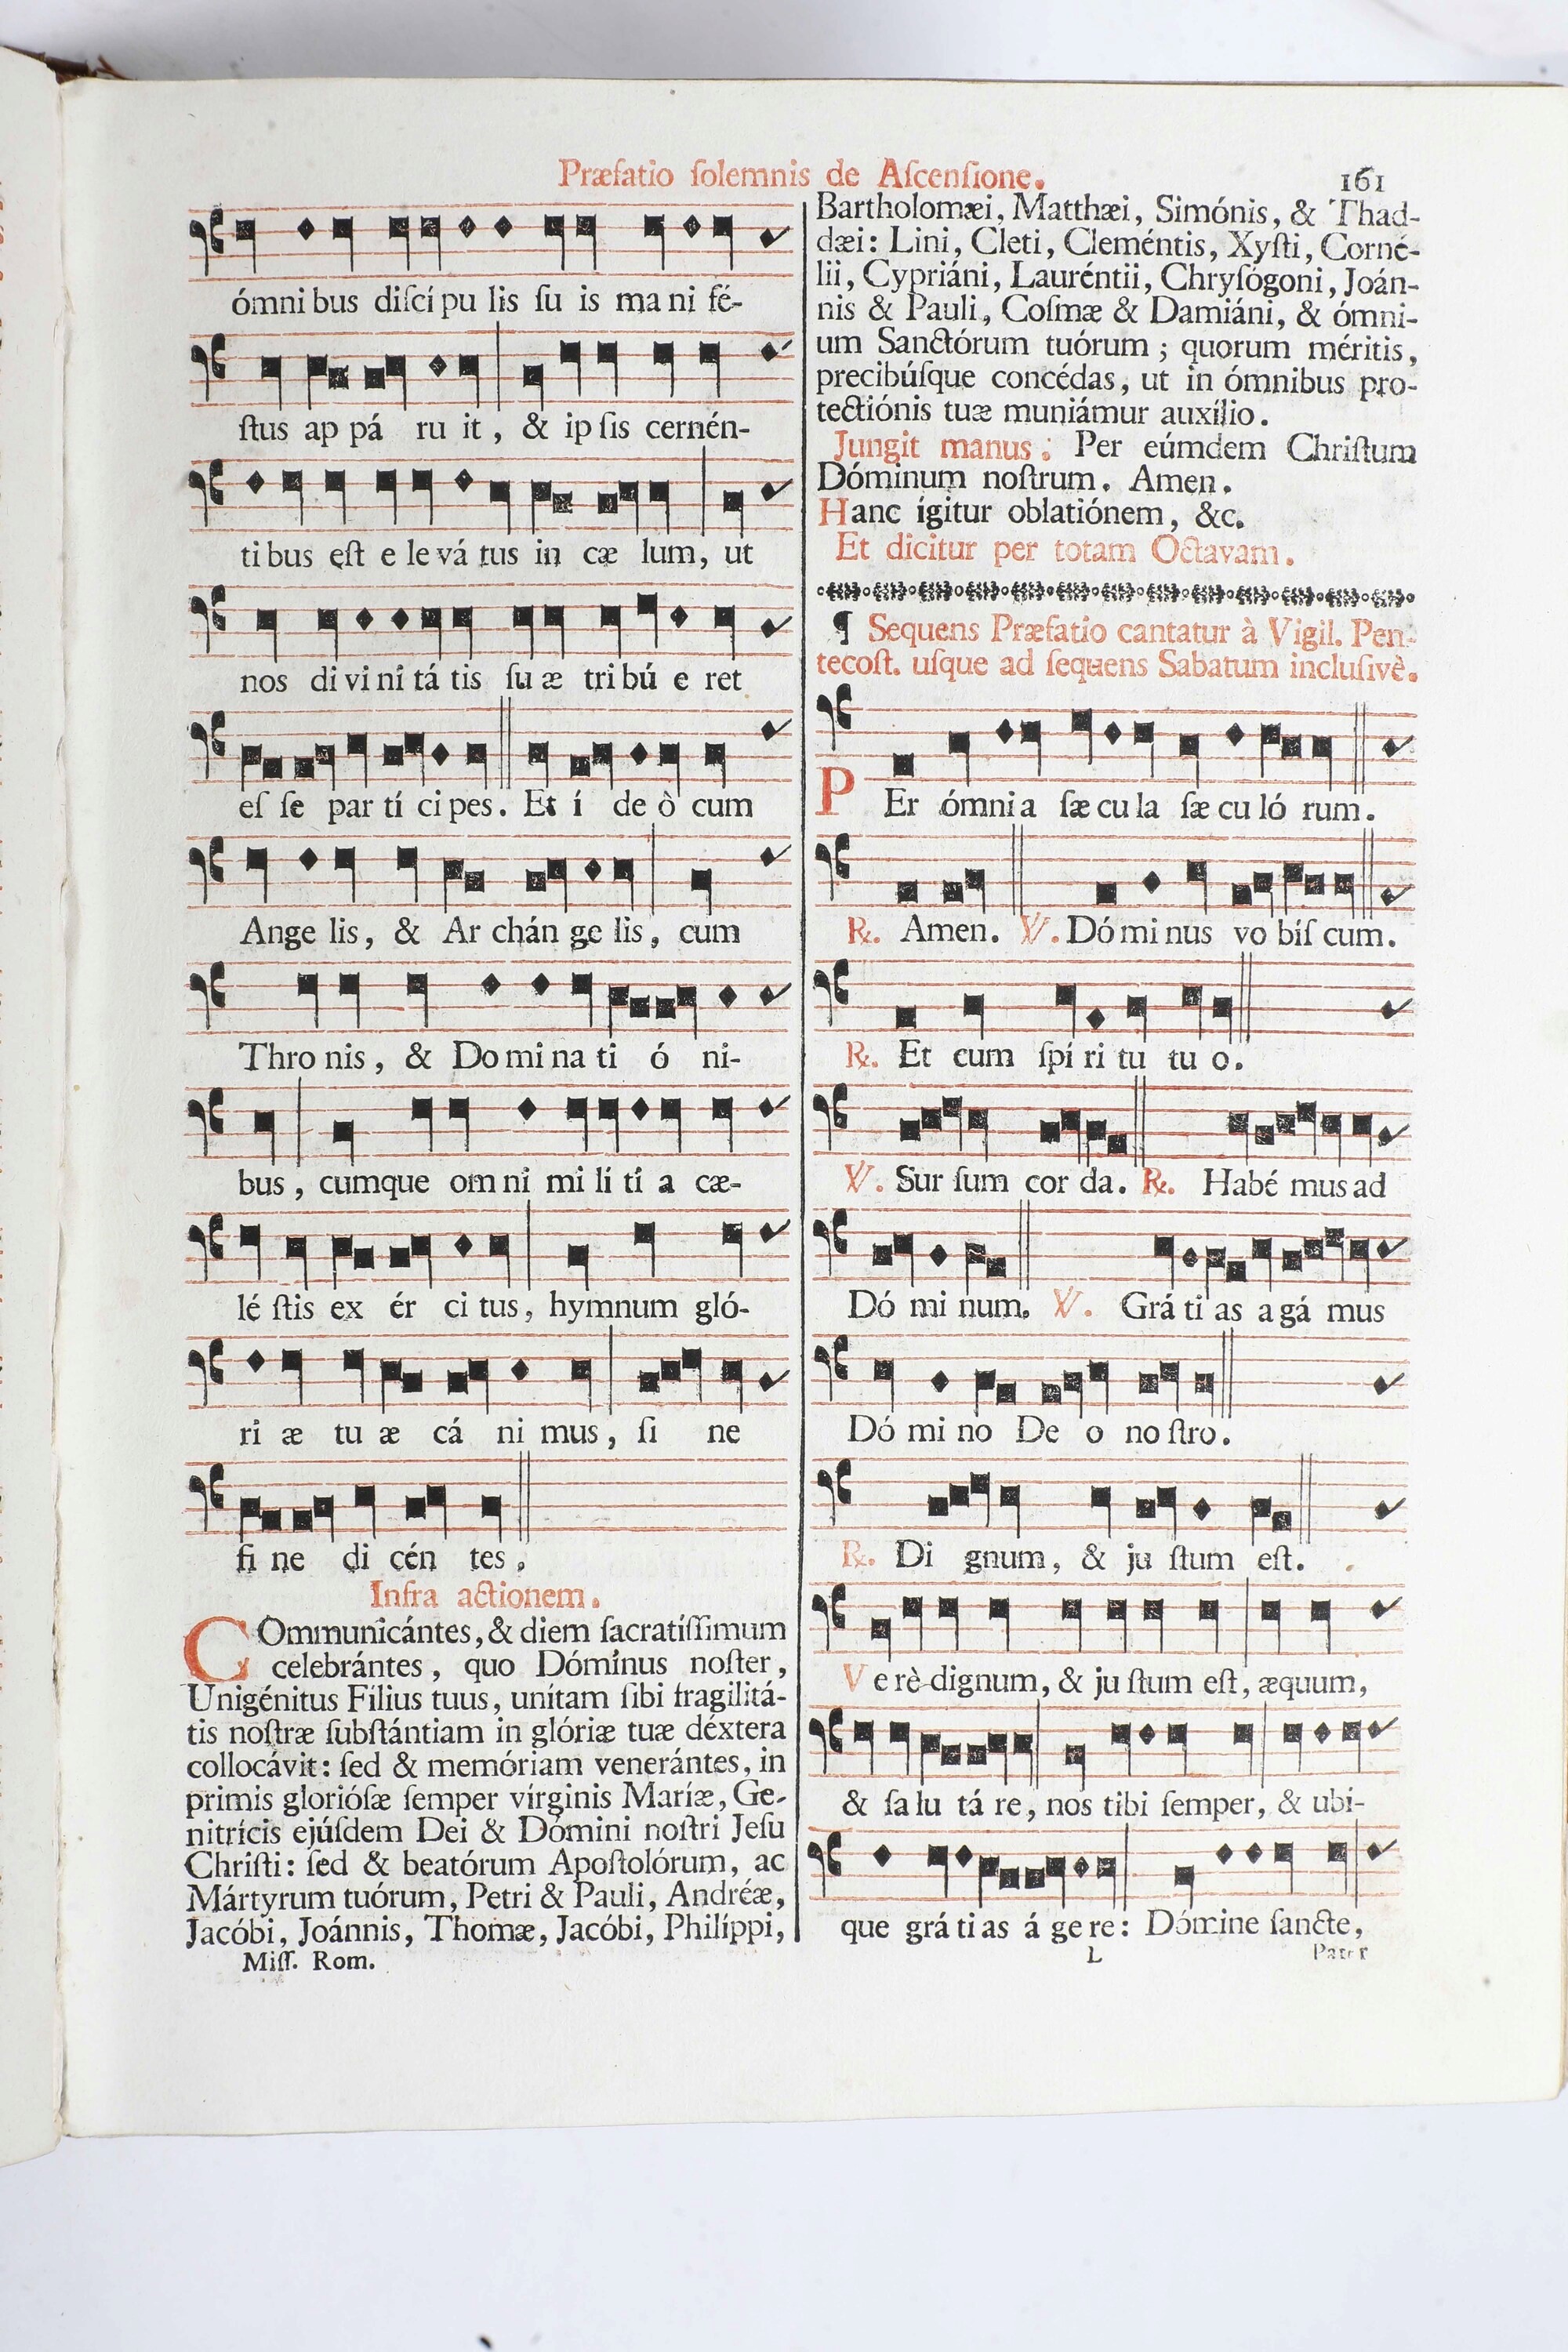 Præfatio ſolemnis de Aſcenſione.
161
ómni bus diſcí pu lis ſu is ma ni fé-
ſtus ap pá ru it, & ip ſis cernén-
ti bus eſt e le vá tus in cæ lum, ut
nos di vi ni tá tis ſu æ tri bú e ret
eſ ſe par tí ci pes. Et í de ò cum
Ange lis, & Ar chán ge lis, cum
Thro nis, & Do mi na ti ó ni-
bus, cumque om ni mi li tí a cæ-
lé ſtis ex ér ci tus, hymnum gló-
ri æ tu æ cá ni mus, ſi ne
fi ne di cén tes.
Infra actionem.
COmmunicántes, & diem ſacratíſſimum
celebrántes, quo Dóminus noſter,
Unigénitus Fílius tuus, unítam ſibi fragilitá-
tis noſtræ ſubſtántiam in glóriæ tuæ déxtera
collocávit: ſed & memóriam venerántes, in
primis glorióſæ ſemper vírginis Maríæ, Ge-
nitrícis ejúſdem Dei & Dómini noſtri Jeſu
Chriſti: ſed & beatórum Apoſtolórum, ac
Mártyrum tuórum, Petri & Pauli, Andréæ,
Jacóbi, Joánnis, Thomæ, Jacóbi, Philíppi,
Miſſ. Rom.
Bartholomæi, Matthæi, Simónis, & Thad-
dæi: Lini, Cleti, Cleméntis, Xyſti, Corné-
lii, Cypriáni, Lauréntii, Chryſógoni, Joán-
nis & Pauli, Coſmæ & Damiáni, & ómni-
um Sanctórum tuórum; quorum méritis,
precibúſque concédas, ut in ómnibus pro-
tectiónis tuæ muniámur auxílio.
Jungit manus: Per eúmdem Chriſtum
Dóminum noſtrum. Amen.
Hanc ígitur oblatiónem, &c.
Et dicitur per totam Octavam.
¶ Sequens Præfatio cantatur à Vigil. Pen-
tecoſt. uſque ad ſequens Sabatum incluſivè.
PEr ómni a ſæ cu la ſæ cu ló rum.
℟. Amen. ℣. Dó mi nus vo biſ cum.
℟. Et cum ſpí ri tu tu o.
℣. Sur ſum cor da. ℟. Habé mus ad
Dó mi num. ℣. Grá ti as a gá mus
Dó mi no De o no ſtro.
℟. Di gnum, & ju ſtum eſt.
Ve rè dignum, & ju ſtum eſt, æquum,
& ſa lu tá re, nos tibi ſemper, & ubi-
que grá ti as á ge re: Dómine ſancte,
L
Pater